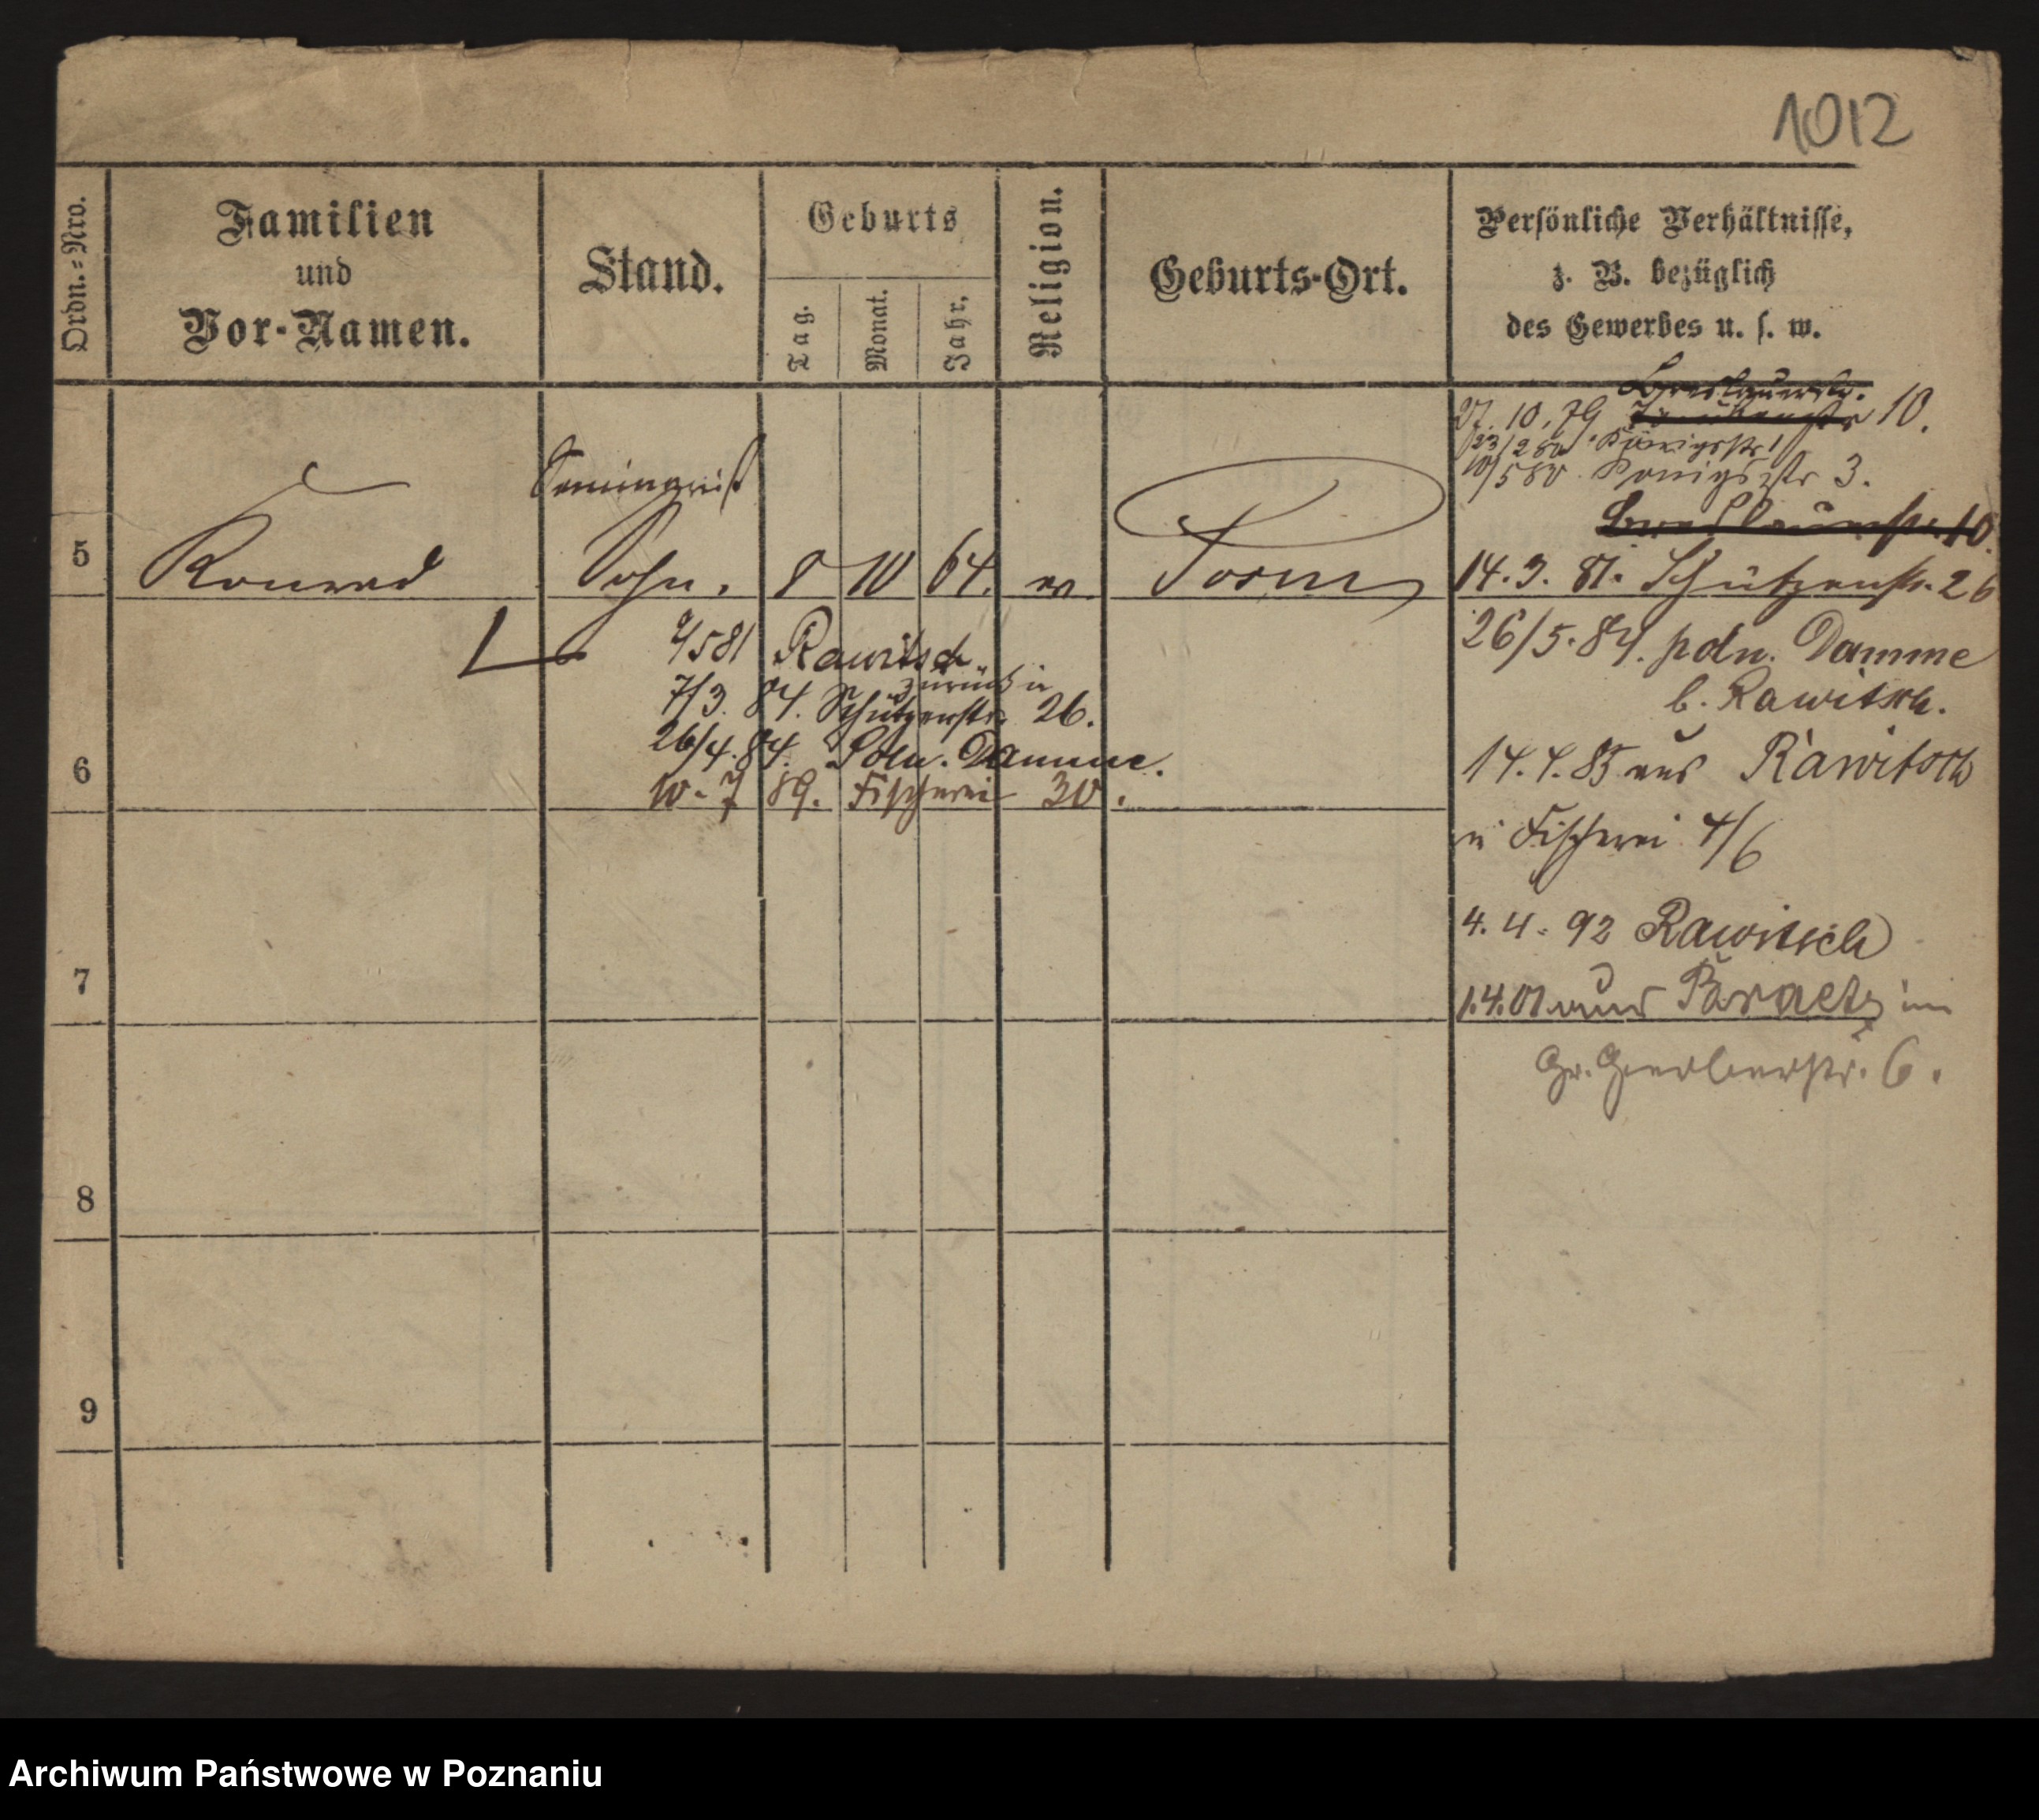 1012
Ordn.=Nro.
Familien
und
Vor-Namen.
Stand.
Geburts
Tag.
Monat.
Jahr.
Religion.
Geburts-Ort.
Persönliche Verhältnisse,
z. B. bezüglich
des Gewerbes u. s. w.
Breslauerstr.
27. 10. 79 10.
23/2 80 Königsstr 1
10/5 80. Königsstr 3.
Breslauerstr. 10.
Seminarist
5 Konrad Sohn. 8 10 64. ev. Posen 14.3.81. Schützenstr. 26
2/5 81 Rawitsch
zurück in
7/3. 84. Schützenstr. 26.
26/4.84. Poln. Damme.
10-7 89. Fischerei 30.
26/5.84. poln. Damme
b. Rawitsch.
6
14.4.85 aus Rawitsch
in Fischerei 4/6
4.4.92 Rawitsch
7
1.4.01 aus in
Gr. Gerberstr. 6.
8
9
Archiwum Państwowe w Poznaniu